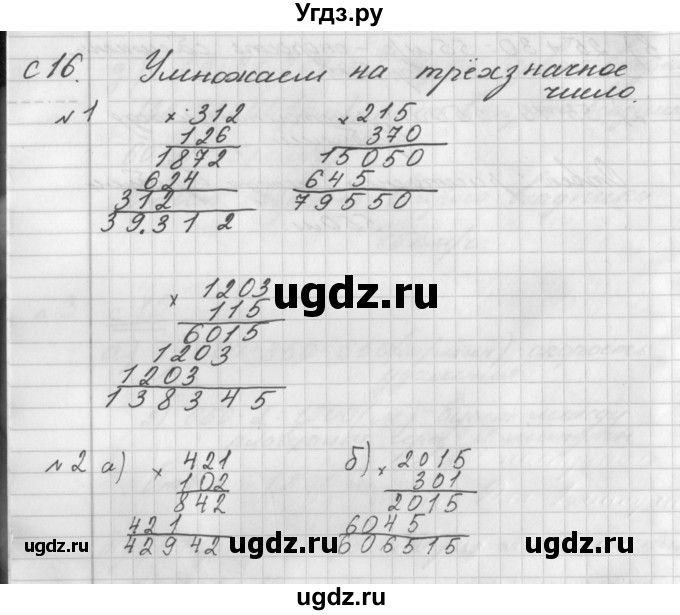 Угдз.ру
с 16. Умножаем на трёхзначное
число.
№1 × 312 × 215
126 370
1872 15050
624 645
312 79550
39.312
× 1203
115
6015
1203
1203
138345
№2 а) × 421 б) × 2015
102 301
842 2015
421 6045
42942 606515
ugdz.ru
ugdz.ru ugdz.ru ugdz.ru ugdz.ru
ugdz.ru